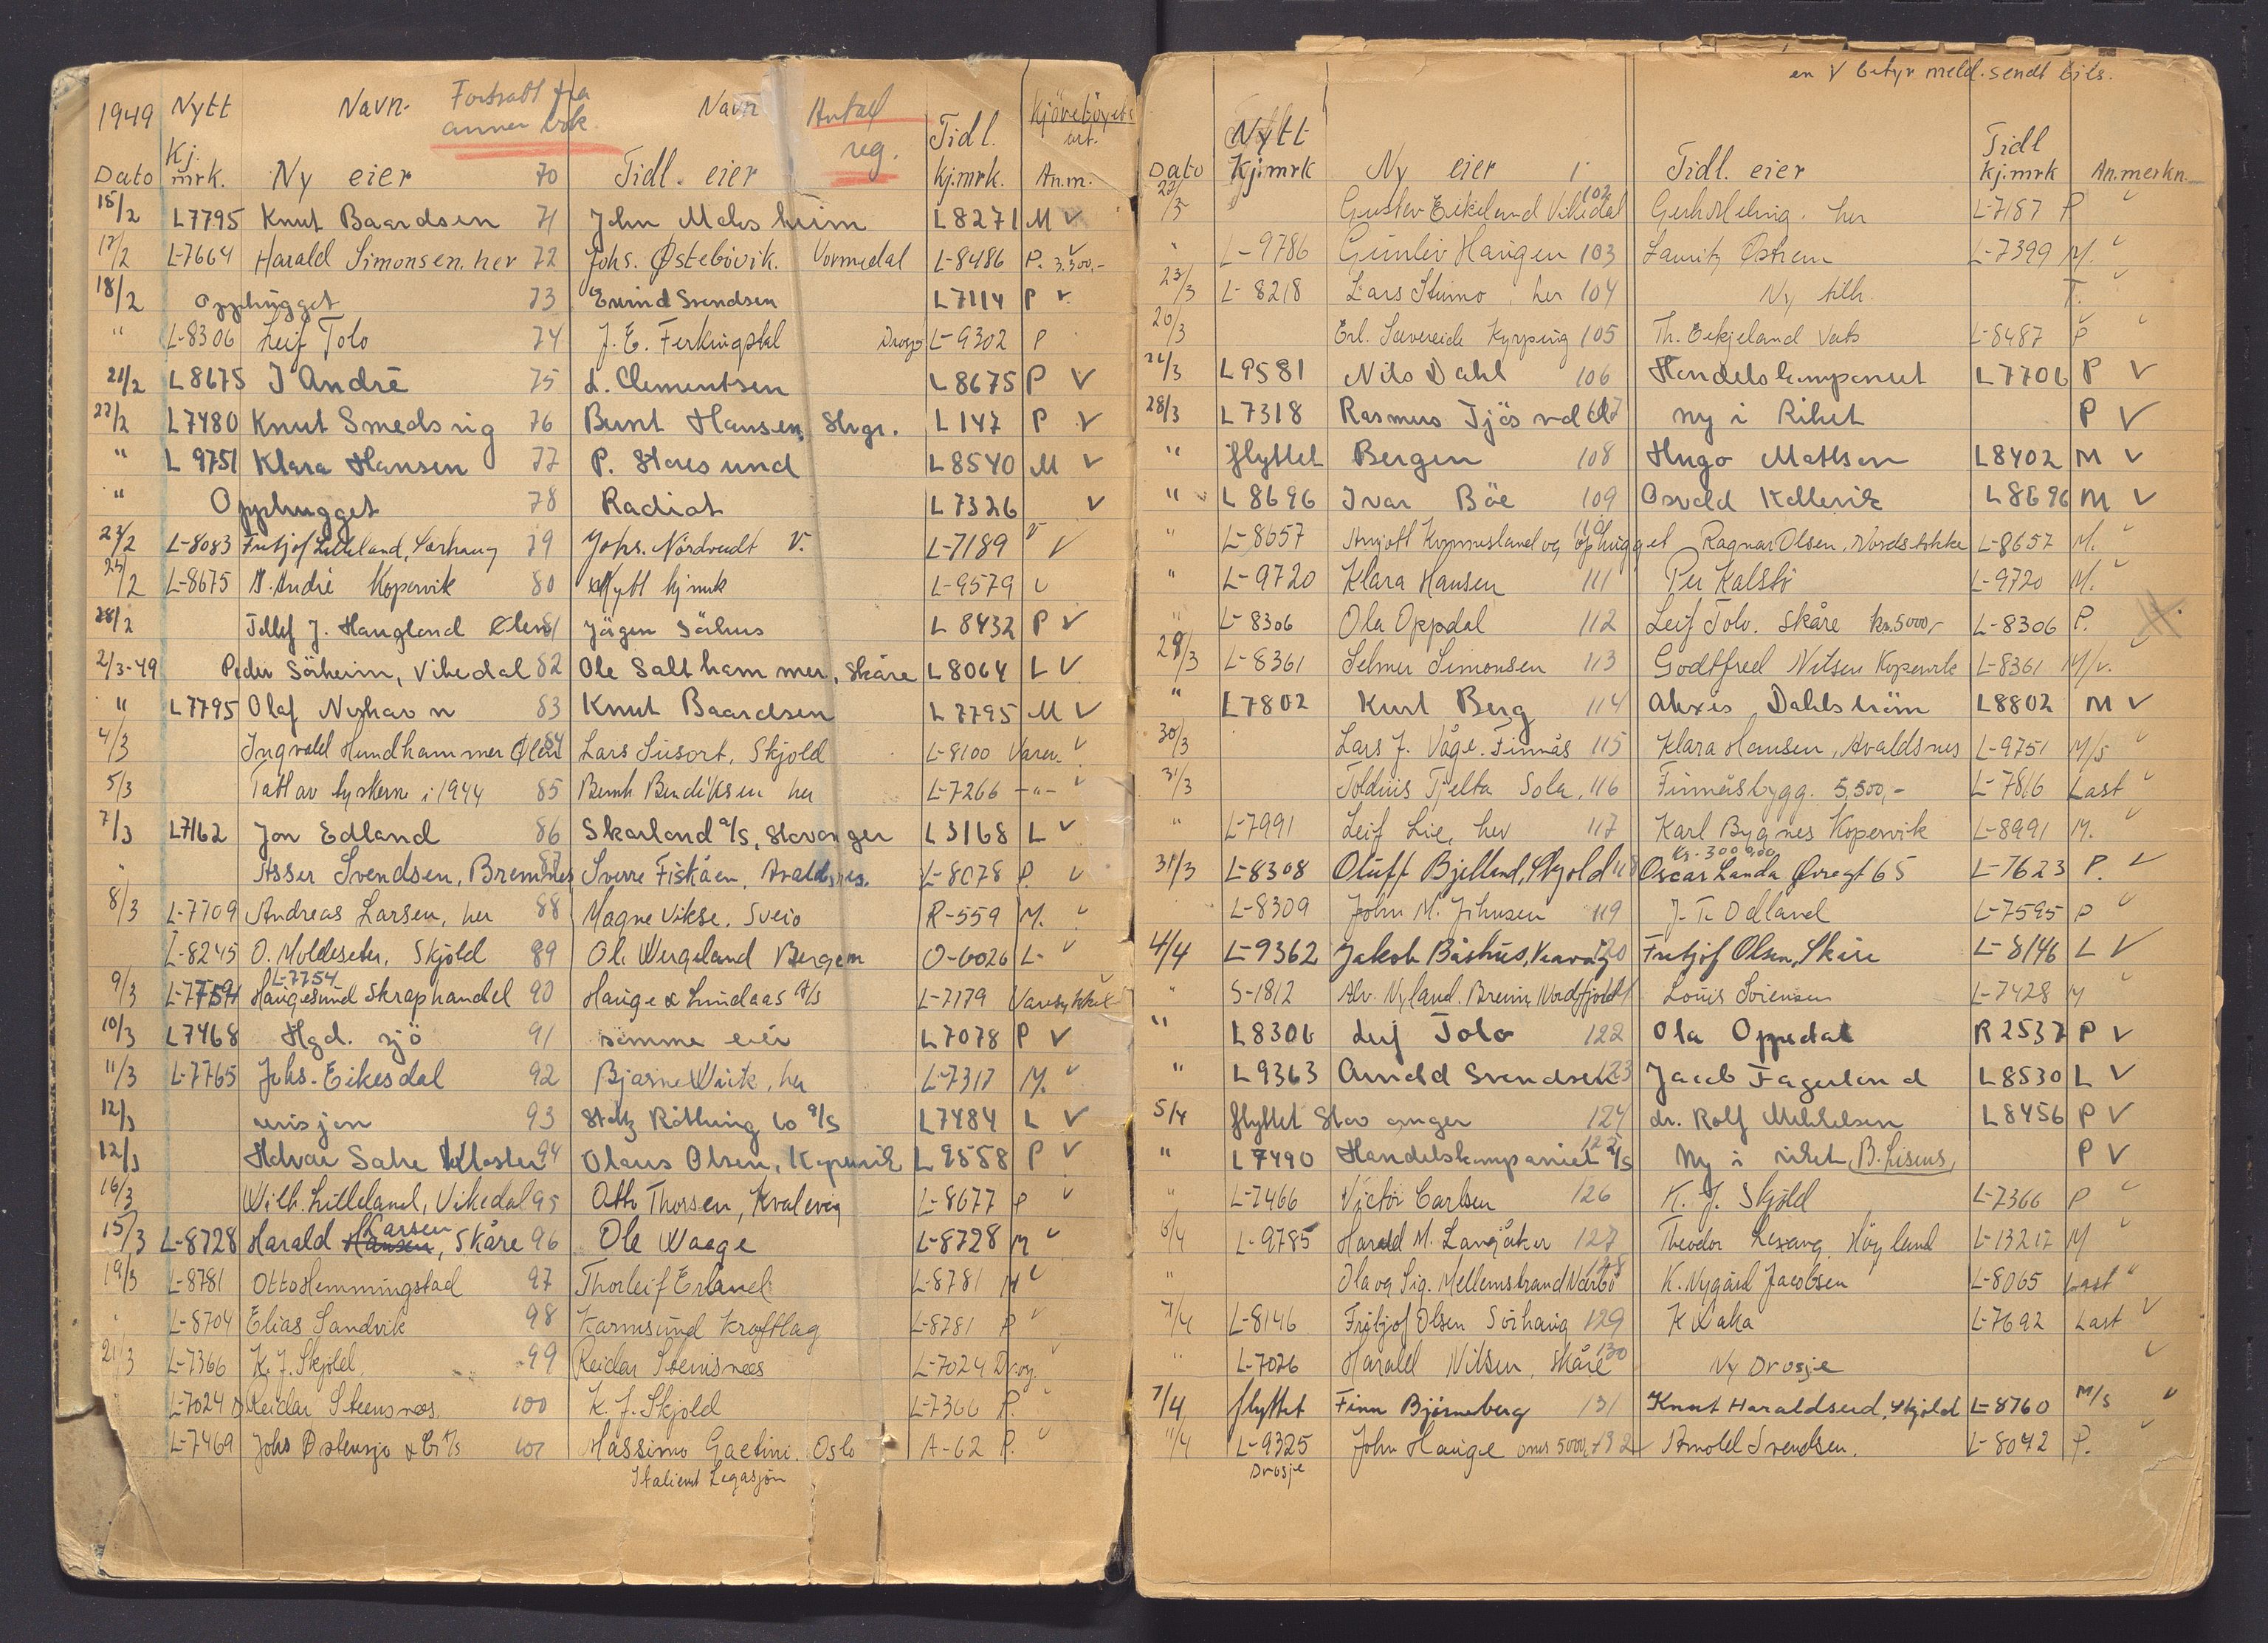 1949 Nytt Navn. Fortsatt fra Navn Antal Kjøretöyets
anner bok. reg. Tidl. art.
Dato Kj. mrk. Ny eier 70 Tidl. eier kj.mrk. An.m.
15/2 L7795 Knut Baardsen 71 John L8271 M V
17/2 L-7664 Harald Simonsen. her 72 Johs. Østebövik. Vormedal L-8486 P. 3.300,- v
18/2 Opphugget 73 Svendsen L7114 P v.
" L-8306 Leif Tolo 74 J. E. L-9302 P
21/2 L8675 J André 75 L. Clementsen L8675 P V
22/2 L7480 Knut Smedsvig 76 Bernt Hansen, Stvgr. L147 P V
" L9751 Klara Hansen 77 P. Storesund L8540 M V
" Opphugget 78 Radiat L7326 V
23/2 L-8083 Fritjof Lilleland, Sørhaug 79 Johs. V. L-7189 V V
25/2 L-8675 André Kopervik 80 Nytt kj mrk L-9579 v
28/2 J. Haugland Ølen 81 Jögen Sörhus L8432 P V
2/3-49 Peder Sörheim, Vikedal 82 Ole Salthammer, Skåre L8064 L V
" L7795 Olaf Nyhavn 83 Knut Baardsen L7795 M V
4/3 Ingvald Hundhammer Ølen 84 Lars Skjold L-8100 Varev. v
5/3 Tatt av tyskerne i 1944 85 Bernh Bendiksen her L-7266 -"- v
7/3 L7162 Jon Edland 86 Skarland a/s, Stavanger L3168 L V
" Asser Svendsen, Bremnes 87 Sverre Fiskåen, Avaldsnes. L-8078 P. v
8/3 L-7709 Andreas Larsen, her 88 Magne Vikse. Sveio R-559 M. v
L-8245 O. Moldeseter, Skjold 89 Ol. Wergeland Bergen O-6026 L- v
L-7754
9/3 Haugesund Skraphandel 90 Hauge & Lindaas A/s L-7179
10/3 L7468 Hgd. sjö 91 samme eier L7078 P V
11/3 L-7765 Johs. Eikesdal 92 Bjarne her L-7317 M. v
12/3 93 Röthing Co a/s L7484 L V
12/3 Salte Kloster 94 Olaus Olsen, Kopervik L9558 P V
16/3 Wilh. Lilleland, Vikedal 95 Otto Thorsen, Kvalevåg L-8677 P v
15/3 L-8728 Harald Hansen Larsen, Skåre 96 Ole Waage L-8728 M v
19/3 L-8781 Otto Hemmingstad 97 Thorleif Erland L-8781 M v
" L-8704 Elias Sandvik 98 Karmsund Kraftlag L-8781 P v
21/3 L-7366 K. J. Skjold. 99 Reidar Steinsnes L-7024 Dros. v
" L-7024 D Reidar Steensnæs. 100 K. J. Skjold L-7366 P. v
L-7469 Johs Østensjø & Co A/s 101 Massimo Gaetini. Oslo A-62 P. v
Italiensk Legasjon
en V betyr meld. sendt bils.
Dato Nytt Kj.mrk Ny eier Tidl. eier Tidl kj.mrk An.merkn.
22/3 " Gustav Eikeland Vikedal 102 Gerh. her L-7187 P v
" L-9786 Gunliv Haugen 103 Lauritz Østrem L-7399 M. v
23/3 L-8218 Lars Stumo, her 104 Ny tilh. T. v
26/3 Erl. Sævereide Kyrping 105 Th. Eikjeland Vats L-8487 P v
26/3 L9581 Nils Dahl 106 Handelskompaniet L7706 P V
28/3 L7318 Rasmus 107 ny i Riket P V
" flyttet Bergen 108 Hugo L8402 M V
" L8696 Ivar Böe 109 Osvald Kallevik L8696 M V
" L-8657 og ophugget 110 Ragnar Olsen, Nordstokke L-8657 M. v
" L-9720 Klara Hansen 111 Per Kalstö L-9720 M. v
" L-8306 Ola Oppdal 112 Leif Tolo. Skåre kr. 5000,- L-8306 P.
29/3 L-8361 Selmer Simonsen 113 Godtfred Nilsen Kopervik L-8361 M/v.
" L7802 Kurt Berg 114 Alexis Dahlström L8802 M V
30/3 Lars J. Våge. Finnås 115 Klara Hansen, Avaldsnes L-9751 M/s v
31/3 Tjelta Sola. 116 Finnåsbygg. 5,500,- L-7816 Last v
" L-7991 Leif Lie, her 117 Karl Bygnes Kopervik L-8991 M. v
31/3 L-8308 Oluff Bjelland, Skjold 118 Oscar Landa Øvregt 65 L-7623 P. v
L-8309 John M. Johnsen 119 J. T. Odland L-7595 P v
4/4 L-9362 Jakob Båshus, Veavåg 120 Fritjof Olsen, Skåre L-8146 L V
" S-1812 Alv. Nyland. Nordfjord 121 Louis Sörensen L-7428 M v
" L8306 Leif Tolo 122 Ola Oppedal R2537 P V
" L9363 Arnold Svendsen 123 Jacob Fagerland L8530 L V
5/4 flyttet Stavanger 124 dr. Rolf L8456 P V
" L7490 Handelskompaniet a/s 125 Ny i riket, B. Lisens, P V
" L-7466 Victor Carlsen 126 K. J. Skjöld L-7366 P v
6/4 L-9785 Harald M. Langåker 127 Theodor Högland L-13217 M v
" Ola og Sig. Mellemstrand Nærbö 128 K. Nygård Jacobsen L-8065 Last v
7/4 L-8146 Fritjof Olsen Sörhaug 129 K Laka L-7692 Last v
" L-7026 Harald Nilsen, Skåre 130 Ny Drosje v
7/4 flyttet Finn Björneberg 131 Knut Haraldseid, Skjold L-8760 M/s v
11/4 L-9325 John Hauge 132 Arnold Svendsen. L-8042 P. v
Drosje